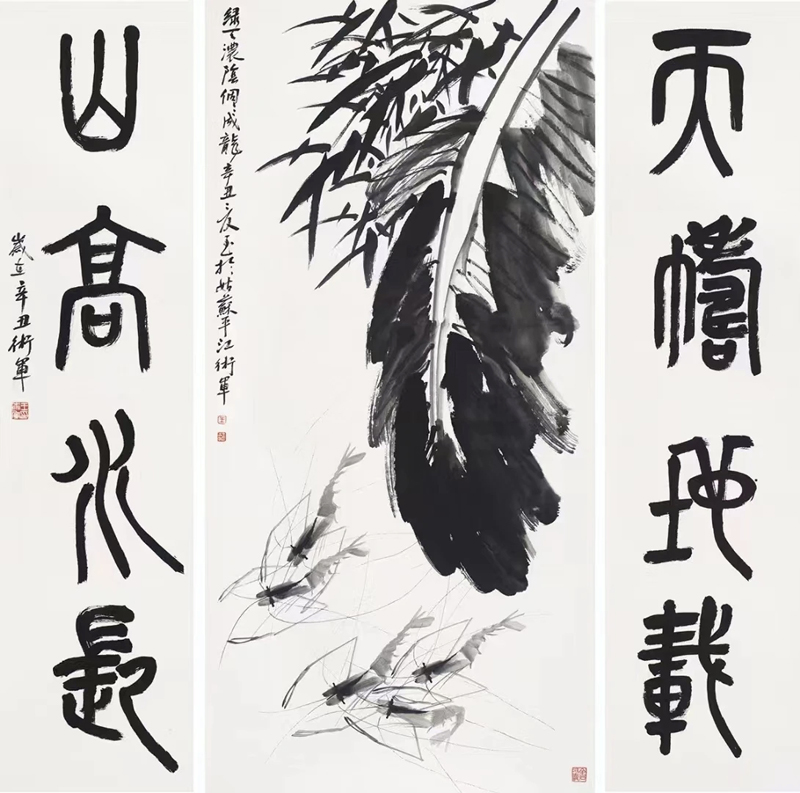 天幬地載
緑天濃陰個成龍辛丑之夏至於姑蘇平江術軍
山高水長
歲在辛丑術軍